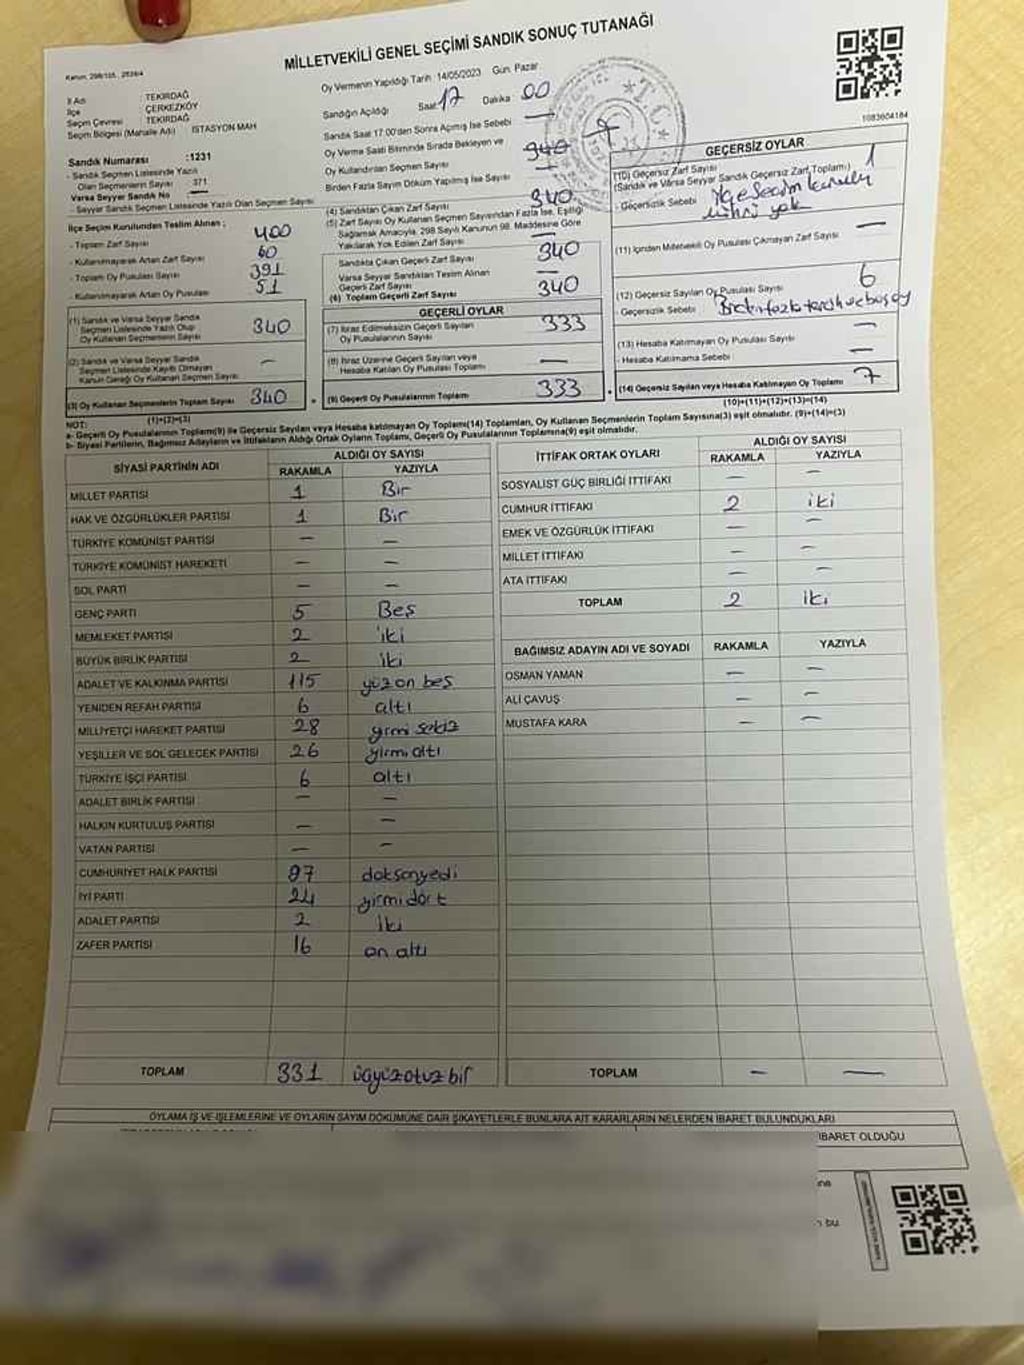 MİLLETVEKİLİ GENEL SEÇİMİ SANDIK SONUÇ TUTANAĞI
İl Adı : TEKİRDAĞ
İlçe : ÇERKEZKÖY
Seçim Çevresi : TEKİRDAĞ
Seçim Bölgesi (Mahalle Adı) İSTASYON MAH
Sandık Numarası :1231
- Sandık Seçmen Listesinde Yazılı
Olan Seçmenlerin Sayısı 371
Varsa Seyyar Sandık No —
- Seyyar Sandık Seçmen Listesinde Yazılı Olan Seçmen Sayısı
İlçe Seçim Kurulundan Teslim Alınan ;
- Toplam Zarf Sayısı 400
- Kullanılmayarak Artan Zarf Sayısı 60
- Toplam Oy Pusulası Sayısı 391
- Kullanılmayarak Artan Oy Pusulası 51
(1) Sandık ve Varsa Seyyar Sandık
Seçmen Listesinde Yazılı Olup
Oy Kullanan Seçmenlerin Sayısı 340
(2) Sandık ve Varsa Seyyar Sandık
Seçmen Listesinde Kayıtlı Olmayan
Kanun Gereği Oy Kullanan Seçmen Sayısı —
(3) Oy Kullanan Seçmenlerin Toplam Sayısı 340
(1)+(2)=(3)
Oy Vermenin Yapıldığı Tarih :14/05/2023 Gün: Pazar
Sandığın Açıldığı Saat 17 Dakika 00
Sandık Saat 17.00'den Sonra Açmış İse Sebebi —
Oy Verme Saati Bitiminde Sırada Bekleyen ve
Oy Kullandırılan Seçmen Sayısı 340
Birden Fazla Sayım Döküm Yapılmış İse Sayısı
(4) Sandıktan Çıkan Zarf Sayısı 340
(5) Zarf Sayısı Oy Kullanan Seçmen Sayısından Fazla İse, Eşitliği
Sağlamak Amacıyla, 298 Sayılı Kanunun 98. Maddesine Göre
Yakılarak Yok Edilen Zarf Sayısı —
Sandıkta Çıkan Geçerli Zarf Sayısı 340
Varsa Seyyar Sandıktan Teslim Alınan
Geçerli Zarf Sayısı —
(6) Toplam Geçerli Zarf Sayısı 340
GEÇERLİ OYLAR
(7) İtiraz Edilmeksizin Geçerli Sayılan
Oy Pusulalarının Sayısı 333
(8) İtiraz Üzerine Geçerli Sayılan veya
Hesaba Katılan Oy Pusulası Toplamı —
(9) Geçerli Oy Pusulalarının Toplamı 333
1083604184
GEÇERSİZ OYLAR
(10) Geçersiz Zarf Sayısı 1
(Sandık ve Varsa Seyyar Sandık Geçersiz Zarf Toplamı)
- Geçersizlik Sebebi İlçe Seçim kurulu
mührü yok
(11) İçinden Milletvekili Oy Pusulası Çıkmayan Zarf Sayısı —
(12) Geçersiz Sayılan Oy Pusulası Sayısı 6
- Geçersizlik Sebebi
(13) Hesaba Katılmayan Oy Pusulası Sayısı —
- Hesaba Katılmama Sebebi —
(14) Geçersiz Sayılan veya Hesaba Katılmayan Oy Toplamı 7
(10)+(11)+(12)+(13)=(14)
NOT:
a- Geçerli Oy Pusulalarının Toplamı(9) ile Geçersiz Sayılan veya Hesaba katılmayan Oy Toplamı(14) Toplamları, Oy Kullanan Seçmenlerin Toplam Sayısına(3) eşit olmalıdır. (9)+(14)=(3)
b- Siyasi Partilerin, Bağımsız Adayların ve İttifakların Aldığı Ortak Oyların Toplamı, Geçerli Oy Pusulalarının Toplamına(9) eşit olmalıdır.
SİYASİ PARTİNİN ADI ALDIĞI OY SAYISI
RAKAMLA YAZIYLA
MİLLET PARTİSİ 1 Bir
HAK VE ÖZGÜRLÜKLER PARTİSİ 1 Bir
TÜRKİYE KOMÜNİST PARTİSİ — —
TÜRKİYE KOMÜNİST HAREKETİ — —
SOL PARTİ — —
GENÇ PARTİ 5 Beş
MEMLEKET PARTİSİ 2 iki
BÜYÜK BİRLİK PARTİSİ 2 iki
ADALET VE KALKINMA PARTİSİ 115 yüz on beş
YENİDEN REFAH PARTİSİ 6 altı
MİLLİYETÇİ HAREKET PARTİSİ 28 yirmi sekiz
YEŞİLLER VE SOL GELECEK PARTİSİ 26 yirmi altı
TÜRKİYE İŞÇİ PARTİSİ 6 altı
ADALET BİRLİK PARTİSİ — —
HALKIN KURTULUŞ PARTİSİ — —
VATAN PARTİSİ — —
CUMHURİYET HALK PARTİSİ 97 doksanyedi
İYİ PARTİ 24 yirmidört
ADALET PARTİSİ 2 iki
ZAFER PARTİSİ 16 on altı
TOPLAM 331 üçyüzotuz bir
İTTİFAK ORTAK OYLARI ALDIĞI OY SAYISI
RAKAMLA YAZIYLA
SOSYALİST GÜÇ BİRLİĞİ İTTİFAKI — —
CUMHUR İTTİFAKI 2 iki
EMEK VE ÖZGÜRLÜK İTTİFAKI — —
MİLLET İTTİFAKI — —
ATA İTTİFAKI — —
TOPLAM 2 iki
BAĞIMSIZ ADAYIN ADI VE SOYADI RAKAMLA YAZIYLA
OSMAN YAMAN — —
ALİ ÇAVUŞ — —
MUSTAFA KARA — —
TOPLAM — —
OYLAMA İŞ VE İŞLEMLERİNE VE OYLARIN SAYIM DÖKÜMÜNE DAİR ŞİKAYETLERLE BUNLARA AİT KARARLARIN NELERDEN İBARET BULUNDUKLARI
İBARET OLDUĞU